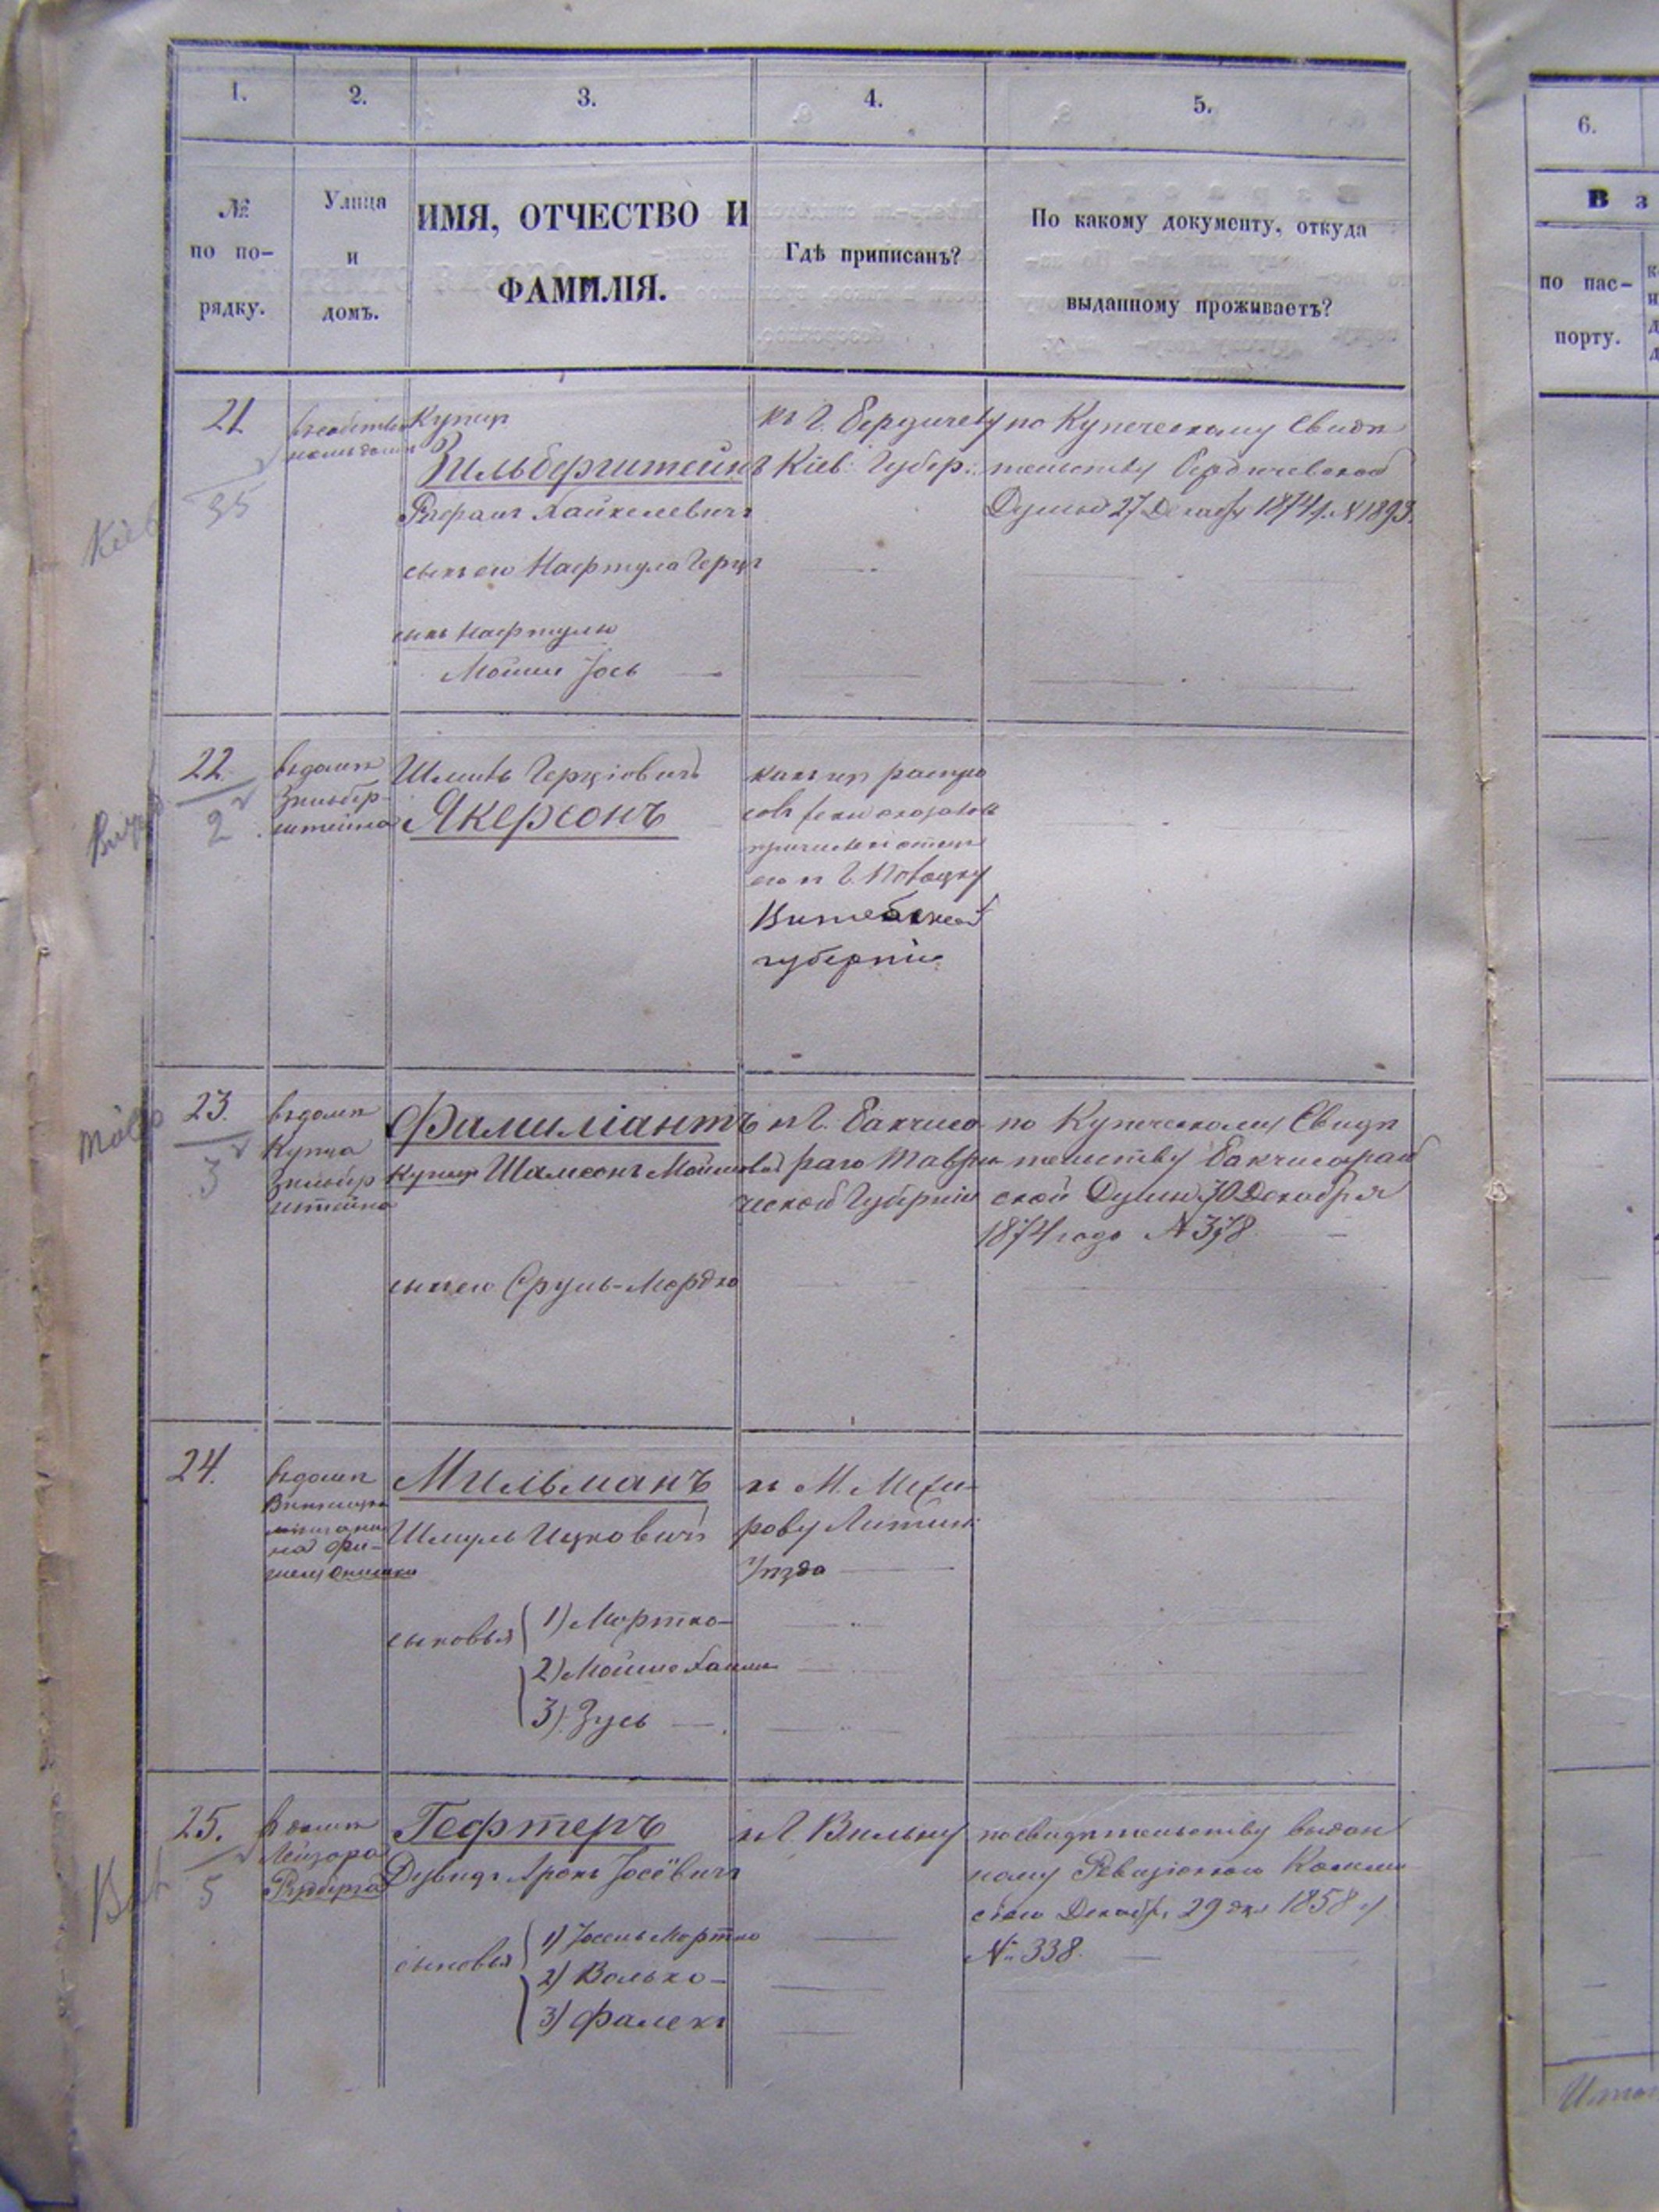 1.
2.
3.
4.
5.
6.
№
по по-
рядку.
Улица
и
домъ.
ИМЯ, ОТЧЕСТВО И
ФАМИЛІЯ.
Гдѣ приписанъ?
По какому документу, откуда
выданному проживаетъ?
В з
по пас-
порту.
21
35
Кіев
Купец
Зильберштейнъ
Хайкелевичъ
сынъ его Нафтула Герцъ
сынъ Нафтулы
Мойше Іось
къ Г. Бердичеву
Кіев: Губер:
по Купеческому Свидѣ
тельству Бердичевской
Думы 27 Декабр 1874 г. № 1893.
22.
2
въ домѣ
Зильбер
штейна
Герціовичъ
Якерсонъ
его къ г. Полоцку
Витебской
губерніи
23.
3
въ домѣ
Купца
Зильбер
штейна
Фамиліантъ
купец Шамсонъ Мошков
сынъ его Сруль-Мордко
къ Г. Бахчиса
раю Таври
ческой Губерніи
по Купеческому Свидѣ
тельству Бахчисарай
ской Думы 30 Декабря
1874 года № 378
24.
въ домѣ
Мильманъ
Шмуль Ицковичъ
сыновья
1) Мортко
2) Мойше Хаим
3) Зусь
къ М. Межи
рову Литин:
Уѣзда
25.
5
в домѣ
Лейзора
Гефтеръ
Аронъ Іосевичъ
сыновья
1) Іосель Мортко
2) Волько
3) Фалекъ
къ Г. Вильну
по свидѣтельству выдан
ному Ревизіонною Комми
сіею Декабр. 29 дня 1858 г.
№ 338.